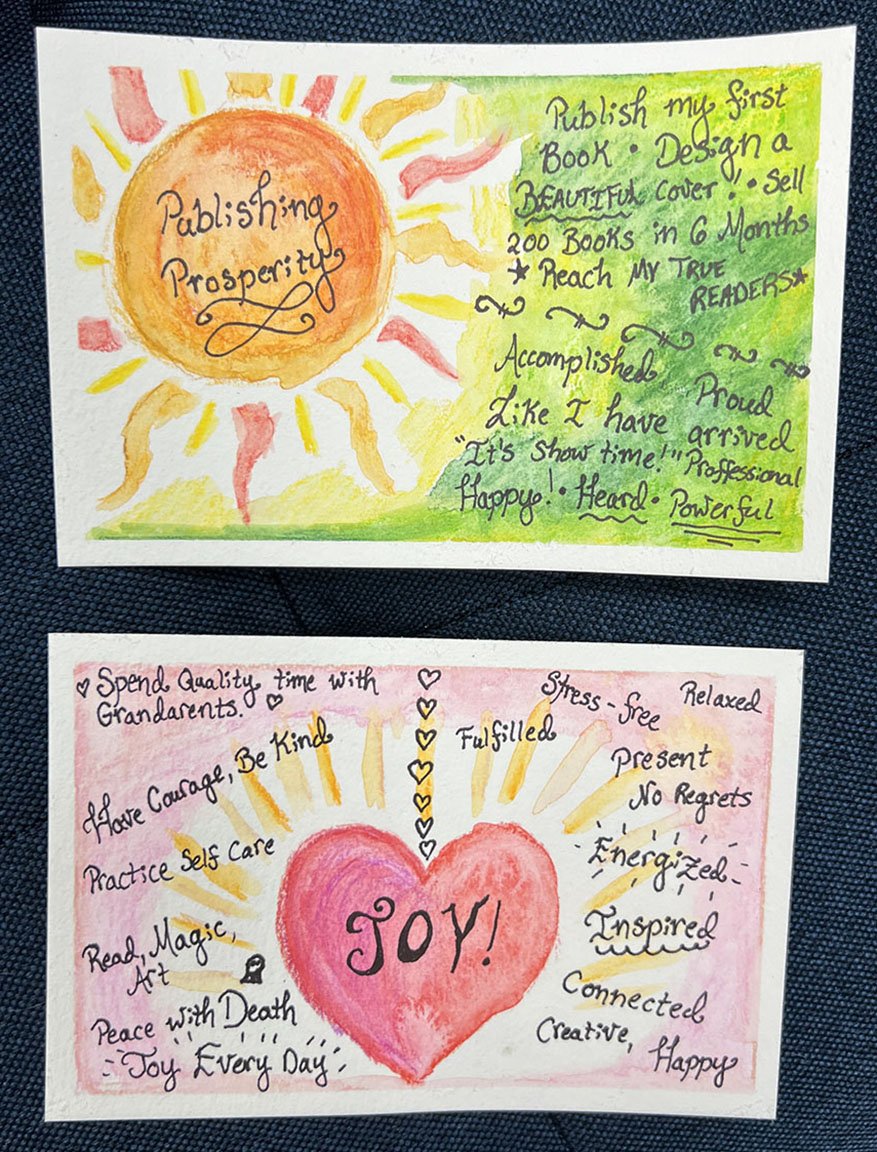 Publishing
Prosperity
Publish my first
Book • Design a
BEAUTIFUL cover! • Sell
200 Books in 6 Months
* Reach MY TRUE
READERS*
Accomplished, Proud
Like I have arrived
"It's show time!" Proffessional
Happy! • Heard • Powerful
♡ Spend Quality time with
Grandarents. ♡
Have Courage, Be Kind
Practice Self Care
Read, Magic,
Art
Peace with Death
Joy Every Day
JOY!
Fulfilled
Stress-free
Relaxed
Present
No Regrets
Energized
Inspired
Connected
Creative,
Happy